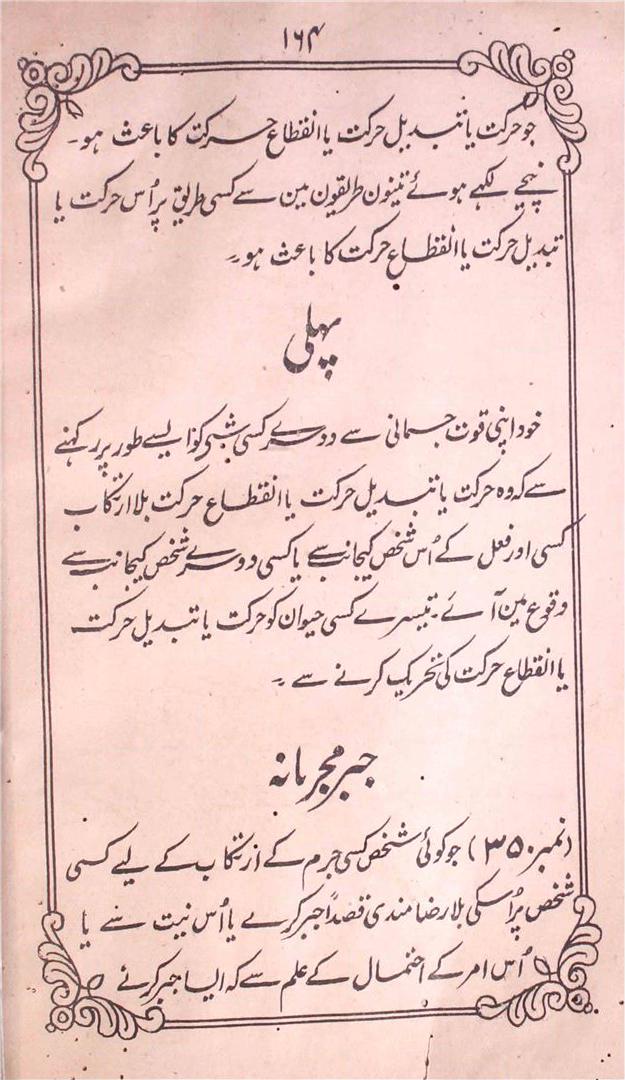 ۱۶۴
جو حرکت یا تبدیل حرکت یا انقطاع حرکت کا باعث ہو۔
نیچے لکہے ہوئے تینون طریقون مین سے کسی طریق پر اُس حرکت یا
تبدیل حرکت یا انقطاع حرکت کا باعث ہو۔
پہلی
خود اپنی قوت جسمانی سے دوسرے کسی شئی کو ایسے طور پر رکہنے
سے کہ وہ حرکت یا تبدیل حرکت یا انقطاع حرکت بلا ارتکاب
کسی اور فعل کے اُس شخص کیجانب سے یا کسی دوسرے شخص کیجانب سے
وقوع مین آئے۔ تیسرے کسی حیوان کو حرکت یا تبدیل حرکت
یا انقطاع حرکت کی تحریک کرنے سے۔
جبر مجرمانہ
(نمبر ۳۵۰) جو کوئی شخص کسی جرم کے ارتکاب کے لیے کسی
شخص پر اُسکی بلا رضامندی قصداً جبر کرے یا اُس نیت سے یا
اُس امر کے احتمال کے علم سے کہ ایسا جبر کرنے